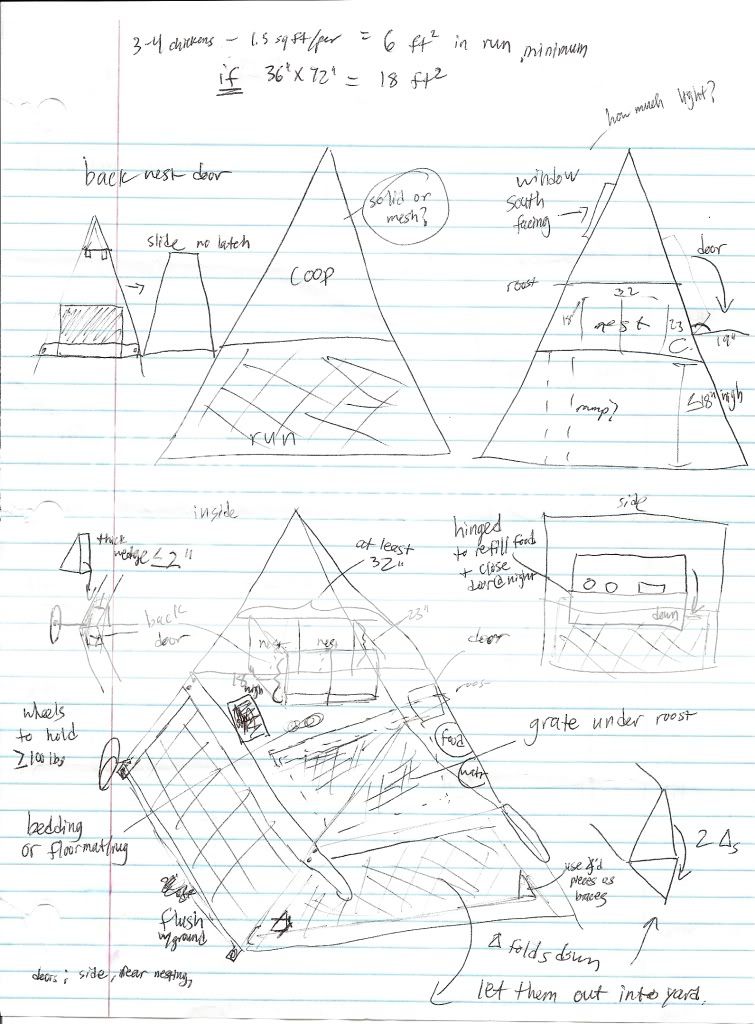 3-4 chickens - 1.5 sq ft/per = 6 ft² in run minimum
if 36" x 72" = 18 ft²
how much light?
back nest door
solid or
mesh?
window
South
facing
slide no latch
door
COOP
roost
32
18"
nest
23
19"
C
≤18" high
ramp?
run
inside
side
thick
wedge ≤ 2"
at least
32"
hinged
to refill food
+ close
door @ night
back
door
nest
nest
23"
door
down
18"
high
roost
wheels
to hold
≥100 lbs
food
watr
grate under roost
bedding
or floormat/rug
2 Δs
use Δ'd
pieces as
braces
flush
w/ground
Δ folds down
doors; side, rear nesting,
let them out into yard.